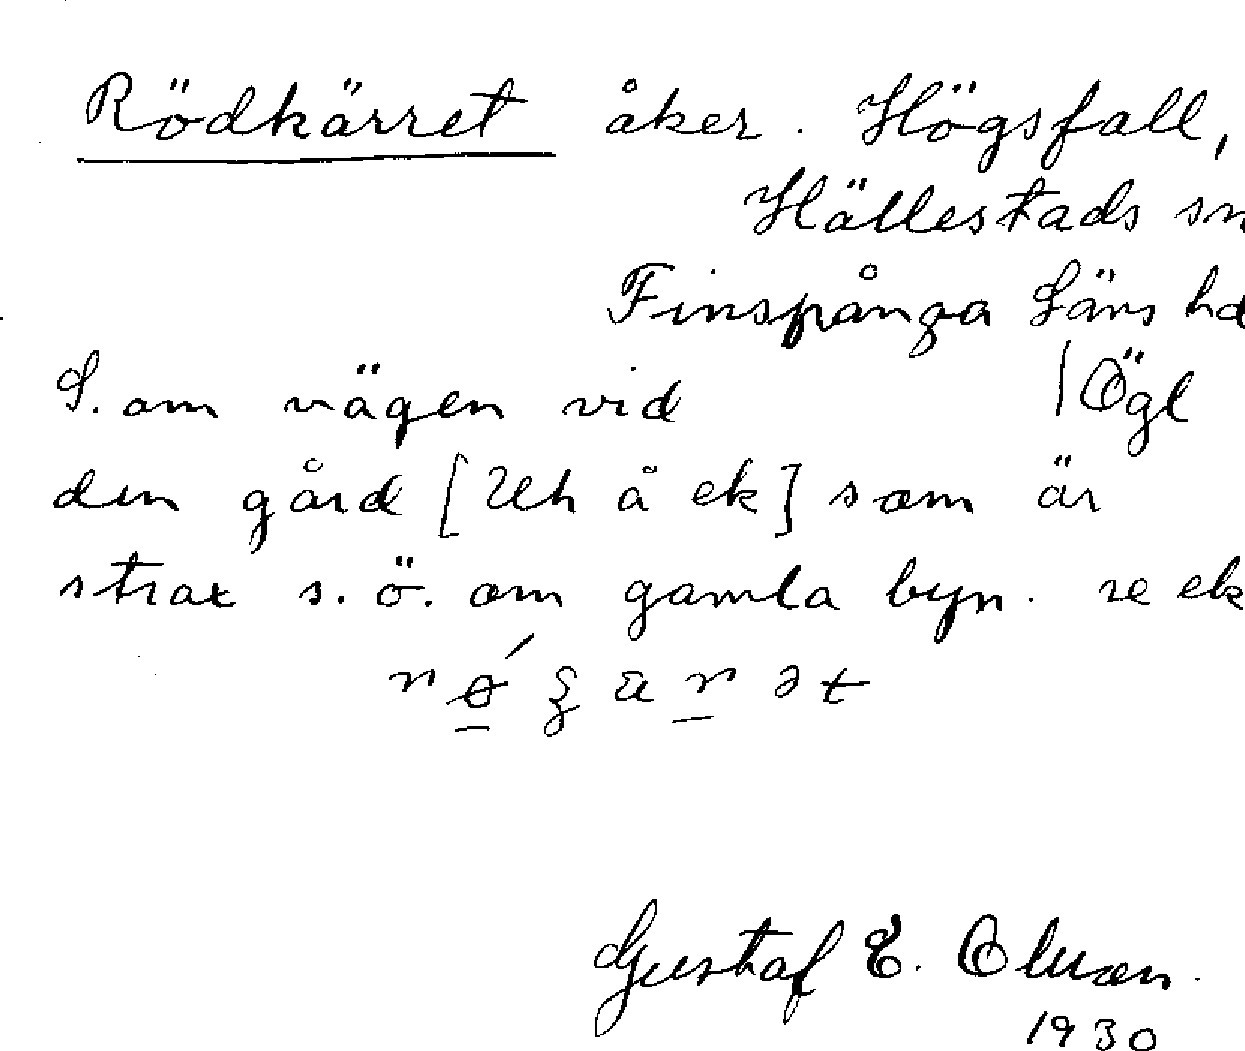 Rödkärret åker. Högsfall,
Hällestads sn
Finspånga Läns hd
S. om vägen vid | Ögl
den gård [Uh å ek] som är
strax s. ö. om gamla byn. se ek
Gustaf E. Olsson.
1930